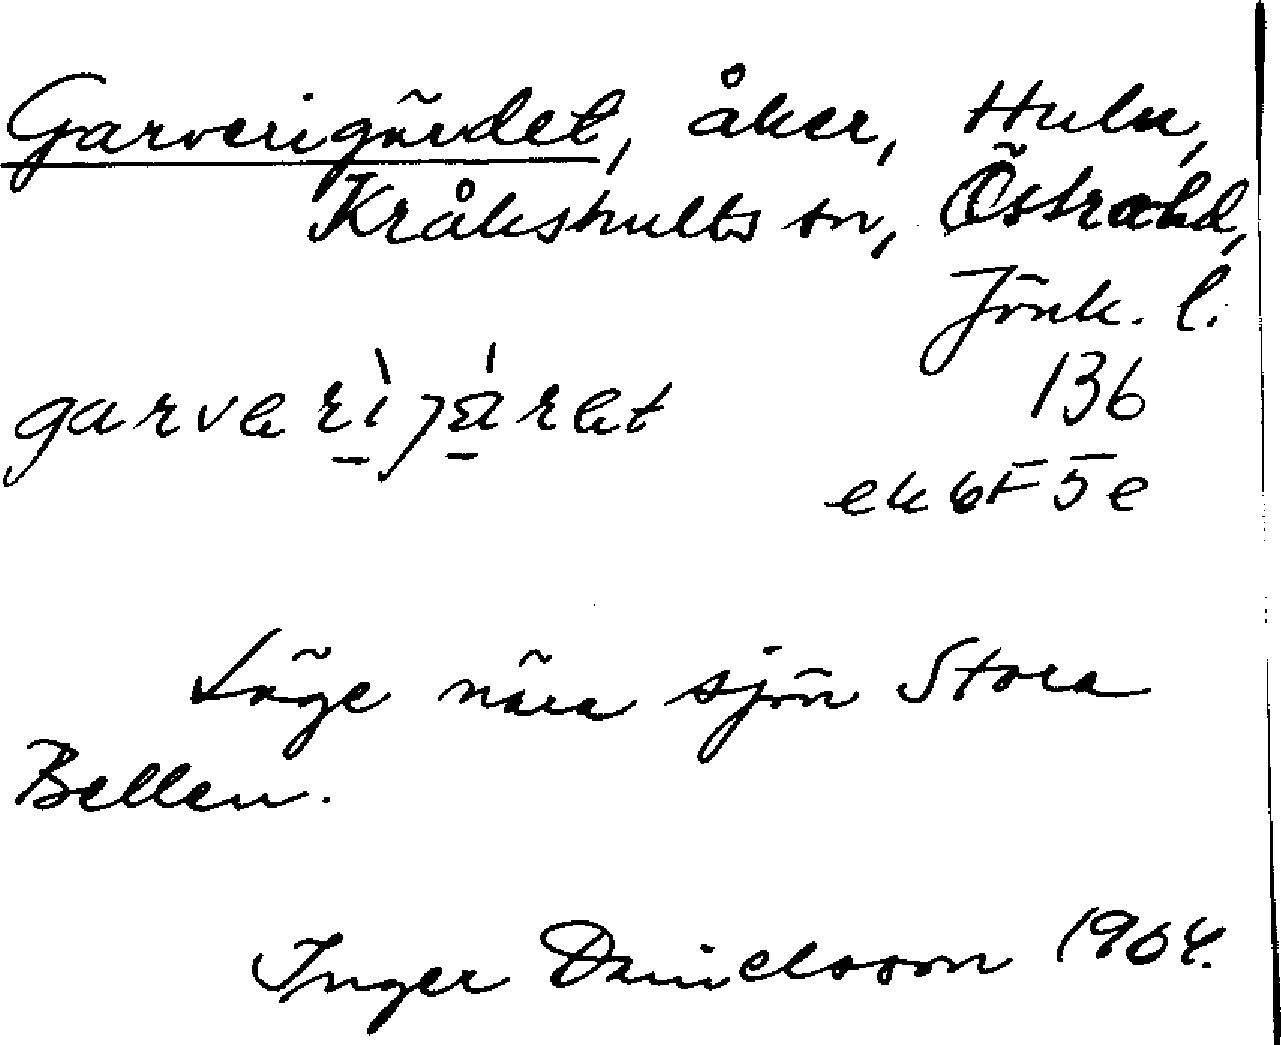 Garverigärdet, åker, Hulu,
Kråkshults sn, Östra hd,
Jönk. l.
garverìjä́ret 136
ek 6F 5e
Läge nära sjön Stora
Bellen.
Inger Danielsson 1964.